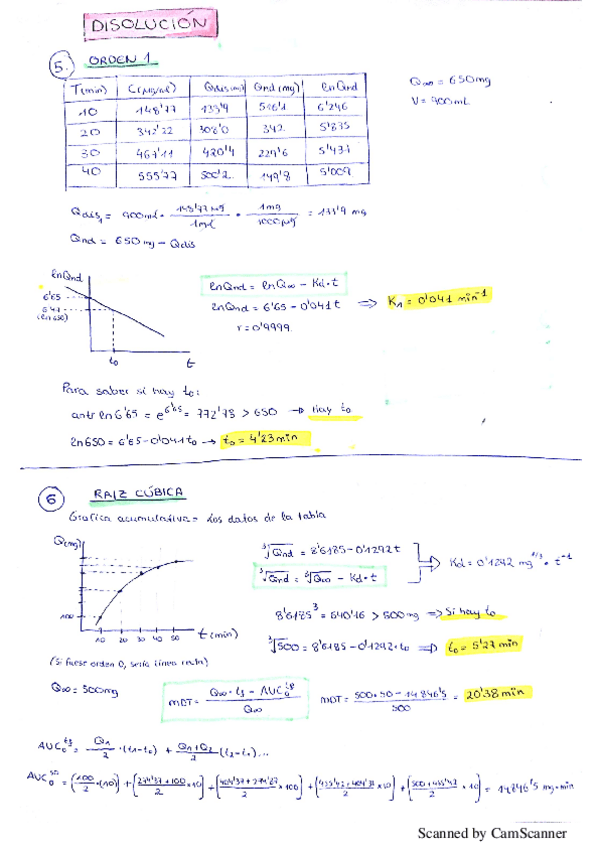 DISOLUCIÓN
5. ORDEN 1
T(min) C(µg/ml) Qdis(mg) Qnd(mg) lnQnd
10 148'77 133'9 516'1 6'246
20 342'22 308'0 342 5'835
30 467'11 420'4 229'6 5'437
40 555'77 500'2 149'8 5'009
Q∞ = 650mg
V = 900mL
Qdis₁ = 900ml · 148'77 µg / 1ml · 1mg / 1000µg = 133'9 mg
Qnd = 650mg - Qdis
lnQnd
6'65
6'47
(ln 650)
to
t
lnQnd = lnQ∞ - Kd·t
lnQnd = 6'65 - 0'041t ⇒ K₁ = 0'041 min⁻¹
r = 0'9999
Para saber si hay to:
antr ln6'65 = e^6'65 = 772'78 > 650 → Hay to
ln650 = 6'65 - 0'041to → to = 4'23min
6 RAIZ CÚBICA
Gráfica acumulativa = Los datos de la tabla
Q(mg)
100
10 20 30 40 50 t(min)
(Si fuese orden 0, sería línea recta)
∛Qnd = 8'6185 - 0'1292t
∛Qnd = ∛Q∞ - Kd·t
Kd = 0'1292 mg^1/3 · t⁻¹
8'6185³ = 640'16 > 500mg ⇒ Si hay to
∛500 = 8'6185 - 0'1292·to ⇒ to = 5'27min
Q∞ = 500mg
MDT = Q∞·tg - AUC₀^tg / Q∞
MDT = 500·50 - 14846'5 / 500 = 20'38min
AUC₀^tg = Q₁/2 ·(t₁-t₀) + Q₁+Q₂/2 (t₂-t₁)...
AUC₀^50 = (100/2 ·(10)) + (274'37+100/2 ×10) +
= 14846'5 mg·min
Scanned by CamScanner